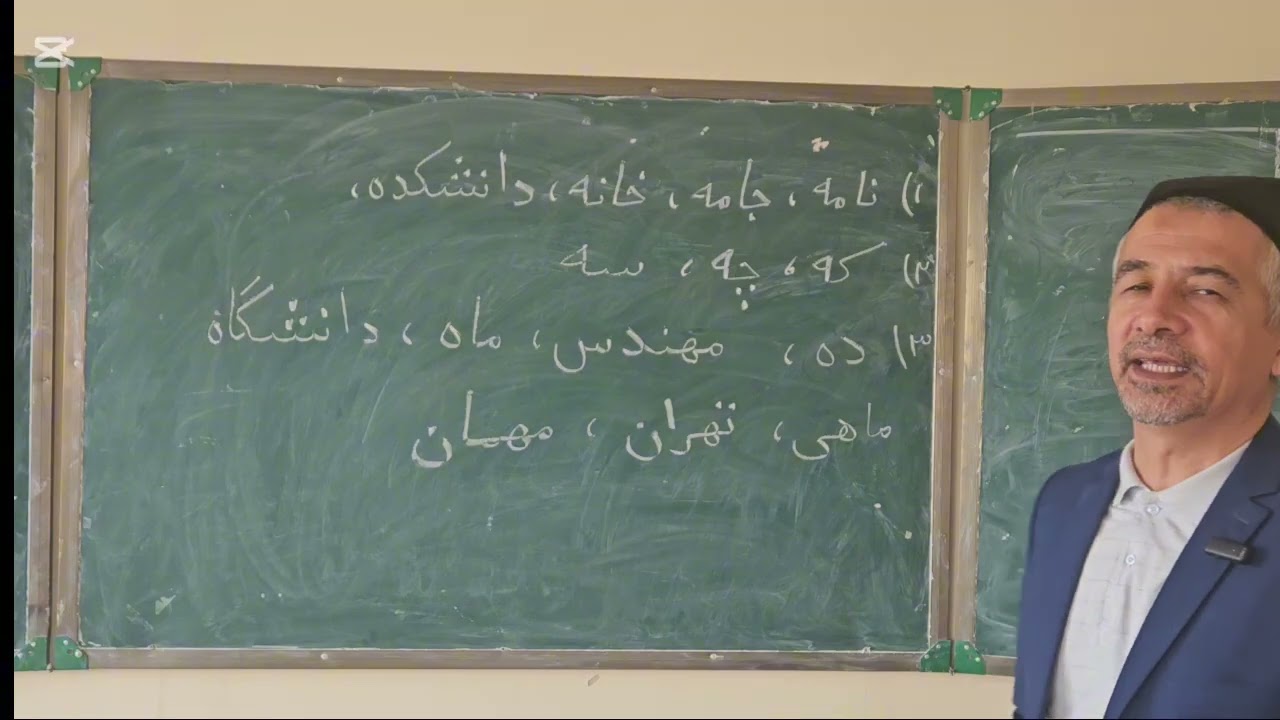 ۱) نامه، جامه، خانه، دانشکده،
۲) که، چه، سه
۳) ده، مهندس، ماه، دانشگاه
ماهی، تهران، مهمان